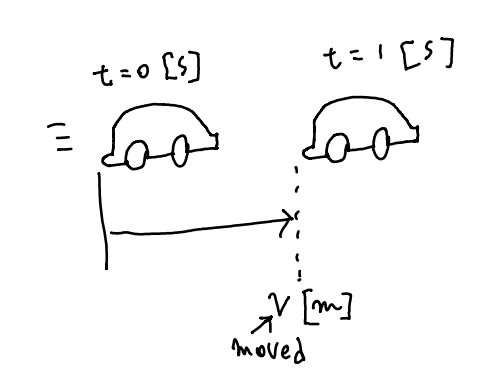 t=0 [s]
t=1 [s]
V [m]
moved